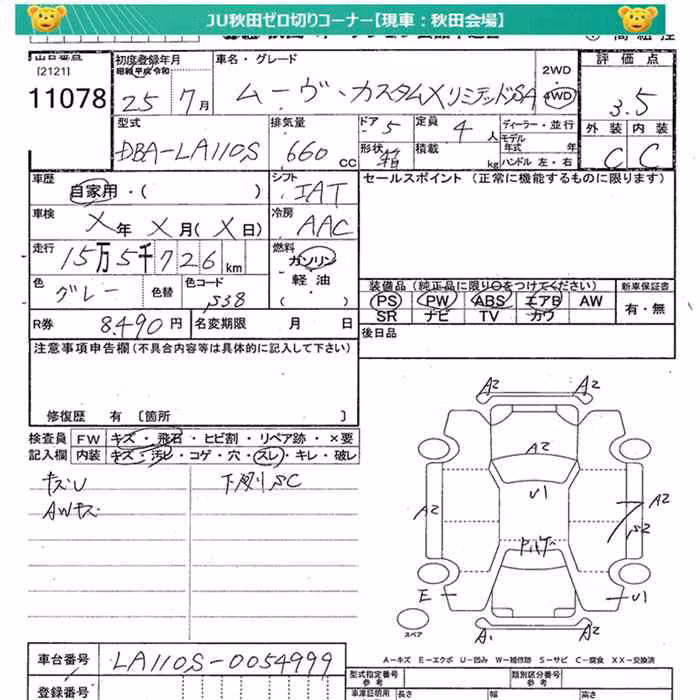 JU秋田ゼロ切りコーナー【現車：秋田会場】
[2121]
11078
初度登録年月
昭和 平成 令和
25 7月
車名・グレード
ムーヴ・カスタムXリミテッドSA
2WD
4WD
評価点
3.5
外装 内装
C C
型式
DBA-LA110S
排気量
660 CC
ドア 5
形状 箱
定員 4人
積載 kg
ディーラー・並行
モデル年式 年式
ハンドル 左・右
車歴
自家用・( )
シフト
IAT
セールスポイント (正常に機能するものに限ります)
車検
X年 X月(X日)
冷房
AAC
走行
15万5千726km
燃料
ガソリン
軽油
( )
色
グレー
色替
色コード
S38
装備品(純正品に限り○をつけてください)
PS PW ABS エアB AW
SR ナビ TV カワ
新車保証書
有・無
R券 8490円
名変期限 月 日
後日品
注意事項申告欄(不具合内容等は具体的に記入して下さい)
修復歴 有 [箇所 ]
検査員 FW キズ・飛石・ヒビ割・リペア跡・×要
記入欄 内装 キズ・汚レ・コゲ・穴・スレ・キレ・破レ
キズU
AWキズ
下廻りSC
A2 A2
A2
U1
A2
A2
S2
E
U1
スペア
A1 A2
A-キズ E-エクボ U-凹み W-補修跡 S-サビ C-腐食 XX-交換済
車台番号 LA110S-0054999
登録番号
型式指定番号
類別区分番号
参考
参考
車庫証明用
長さ
幅
高さ